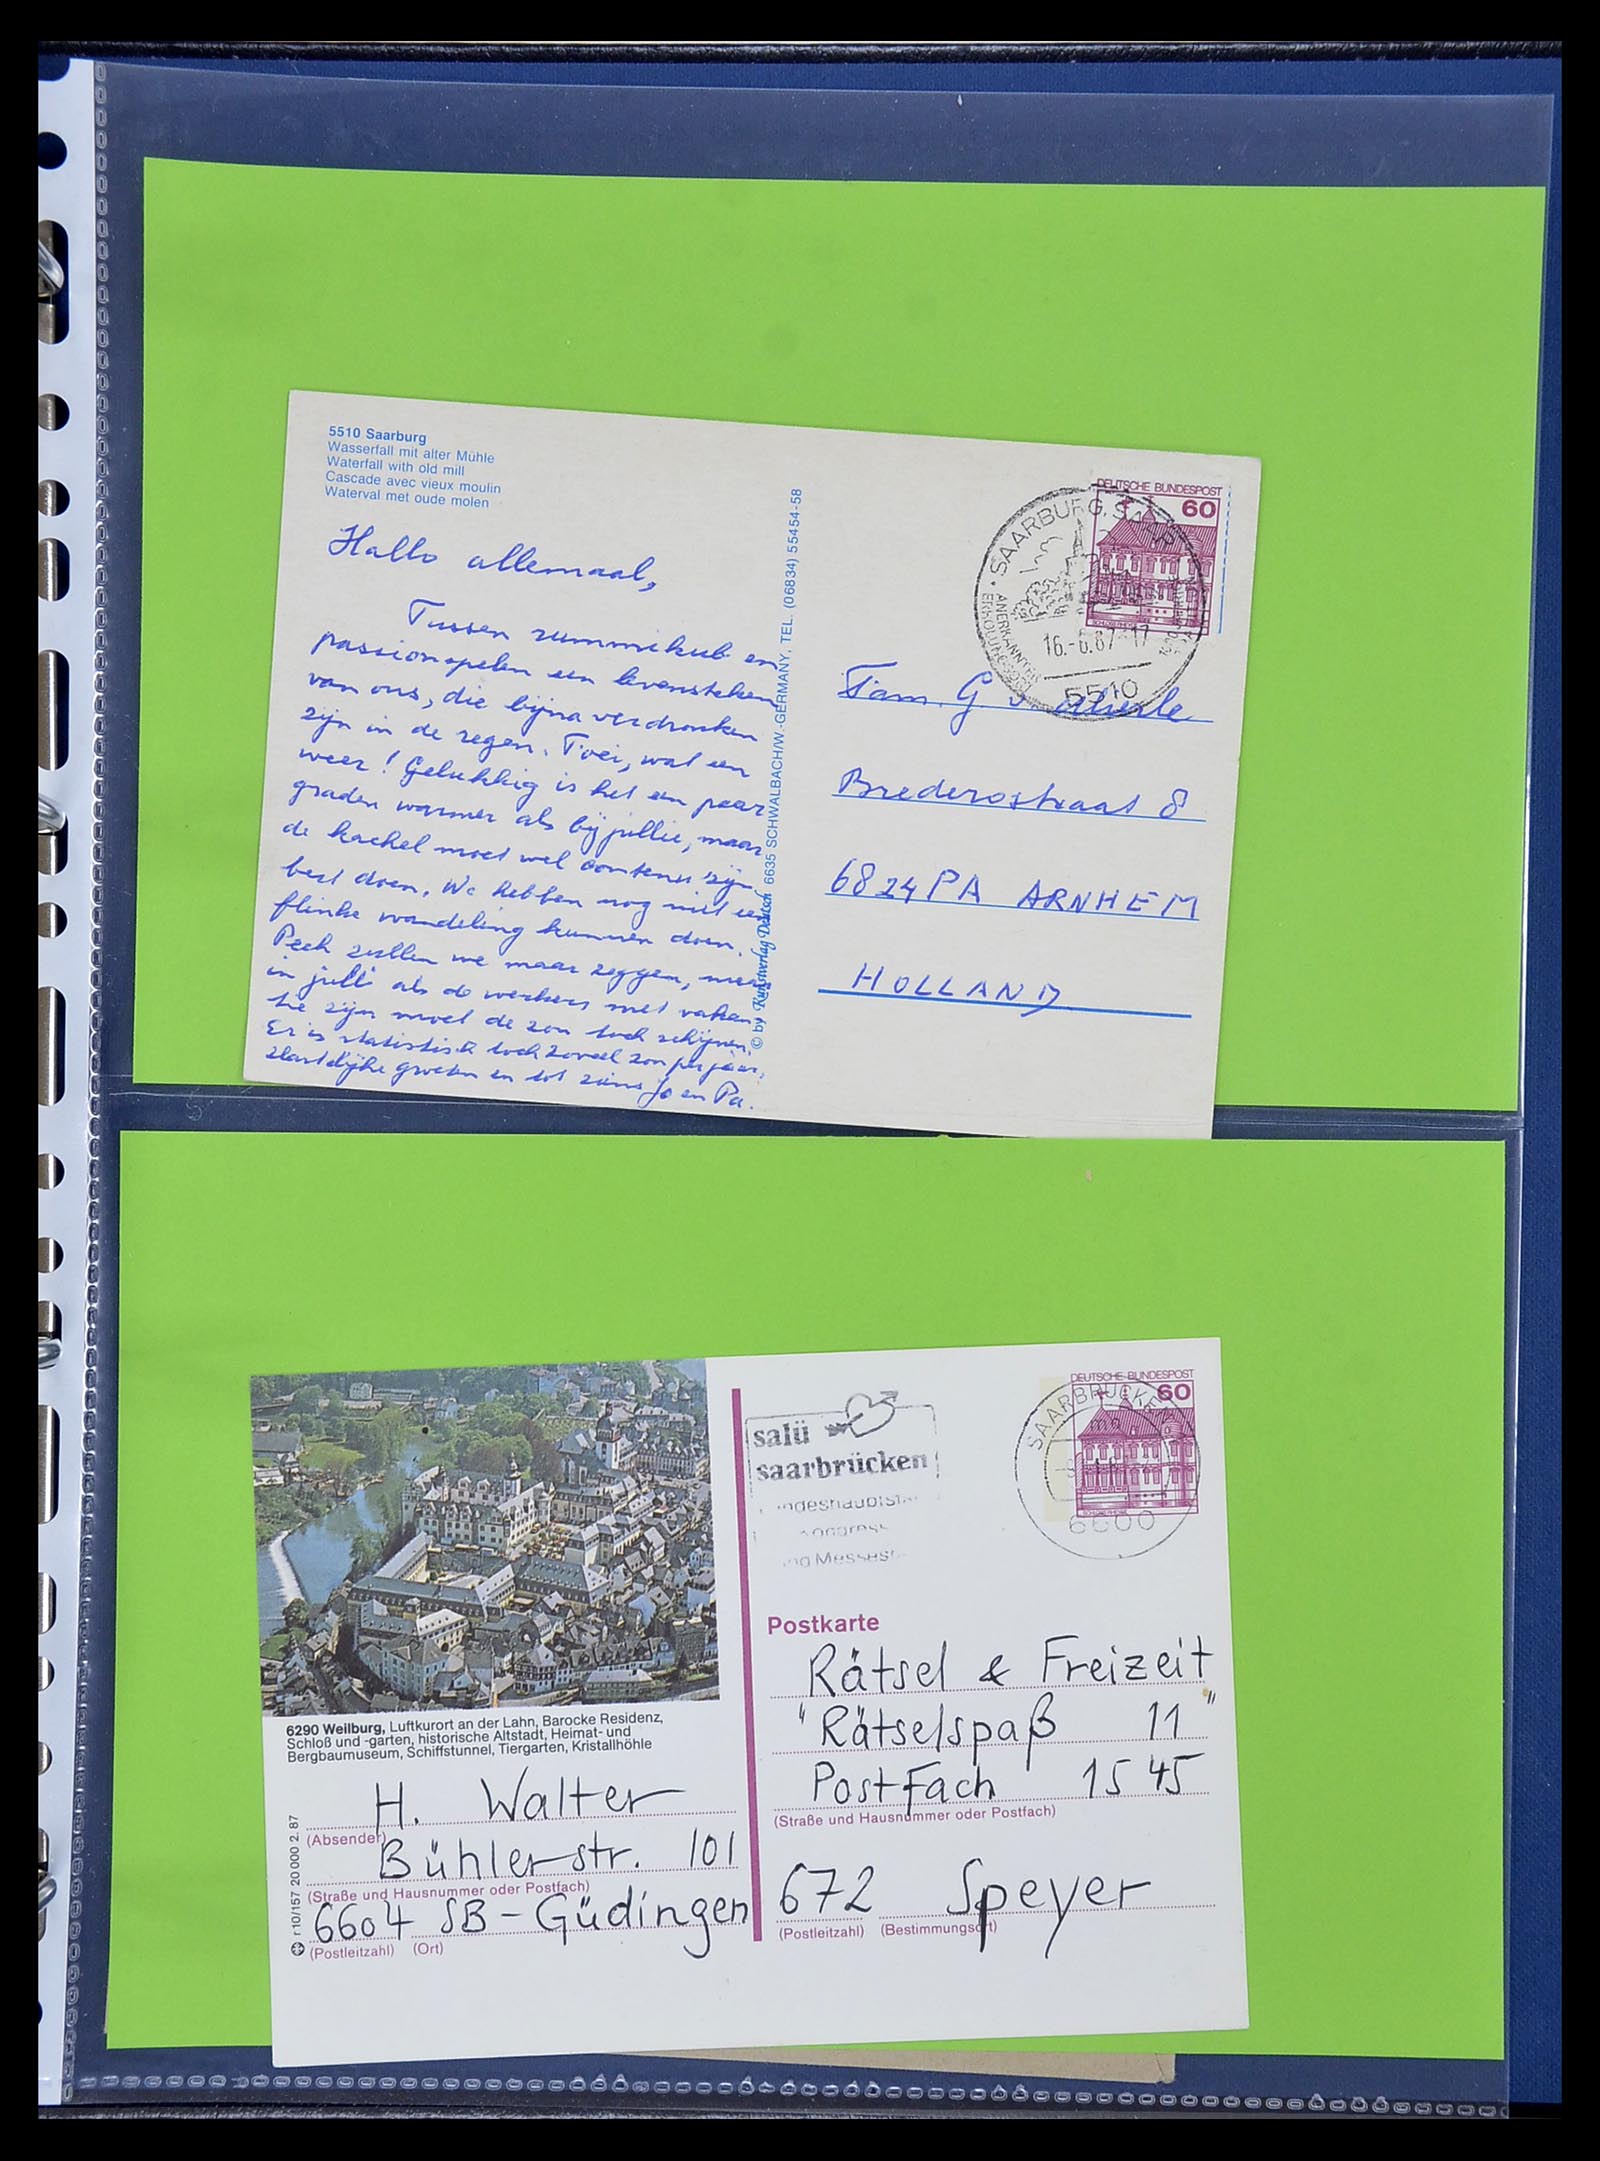 5510 Saarburg
Wasserfall mit alter Mühle
Waterfall with old mill
Cascade avec vieux moulin
Waterval met oude molen
Hallo allemaal,
Tussen rummikub en
passionspelen een levensteken
van ons, die bijna verdronken
zijn in de regen. Foei, wat een
weer! Gelukkig is het een paar
graden warmer als bij jullie, maar
de kachel moet wel continu zijn
best doen. We hebben nog niet een
flinke wandeling kunnen doen.
Pech zullen we maar zeggen,
in juli als de werkers met vakan-
tie zijn moet de zon toch schijnen.
Er is statistisch toch zoveel zon per jaar.
Hartelijke groeten en tot ziens Jo en Pa.
© by Kunstverlag Deutsch 6635 SCHWALBACH/W.-GERMANY, TEL. (06834) 55454-58
DEUTSCHE BUNDESPOST
60
SAARBURG, SAAR
16.-6.87-17
5510
Fam. G. v.
Brederostraat 8
6824 PA ARNHEM
HOLLAND
6290 Weilburg, Luftkurort an der Lahn, Barocke Residenz,
Schloß und -garten, historische Altstadt, Heimat- und
Bergbaumuseum, Schiffstunnel, Tiergarten, Kristallhöhle
H. Walter
(Absender)
Bühlerstr. 101
(Straße und Hausnummer oder Postfach)
6604 SB-Güdingen
(Postleitzahl) (Ort)
r10/157 20 000 2.87
salü
saarbrücken
DEUTSCHE BUNDESPOST
60
SAARBRÜCKEN
6600
Postkarte
Rätsel & Freizeit
"Rätselspaß 11"
Postfach 1545
(Straße und Hausnummer oder Postfach)
672 Speyer
(Postleitzahl) (Bestimmungsort)